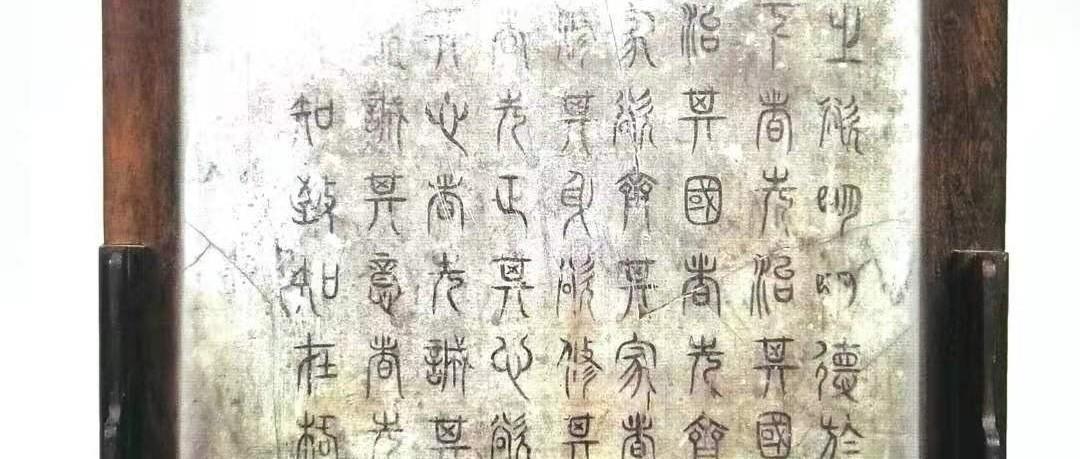 之欲明明德於
下者先治其國
治其國者先齊
家欲齊其家者
修其身欲修其
者先正其心欲
其心者先誠其
誠其意者先
知致知在格